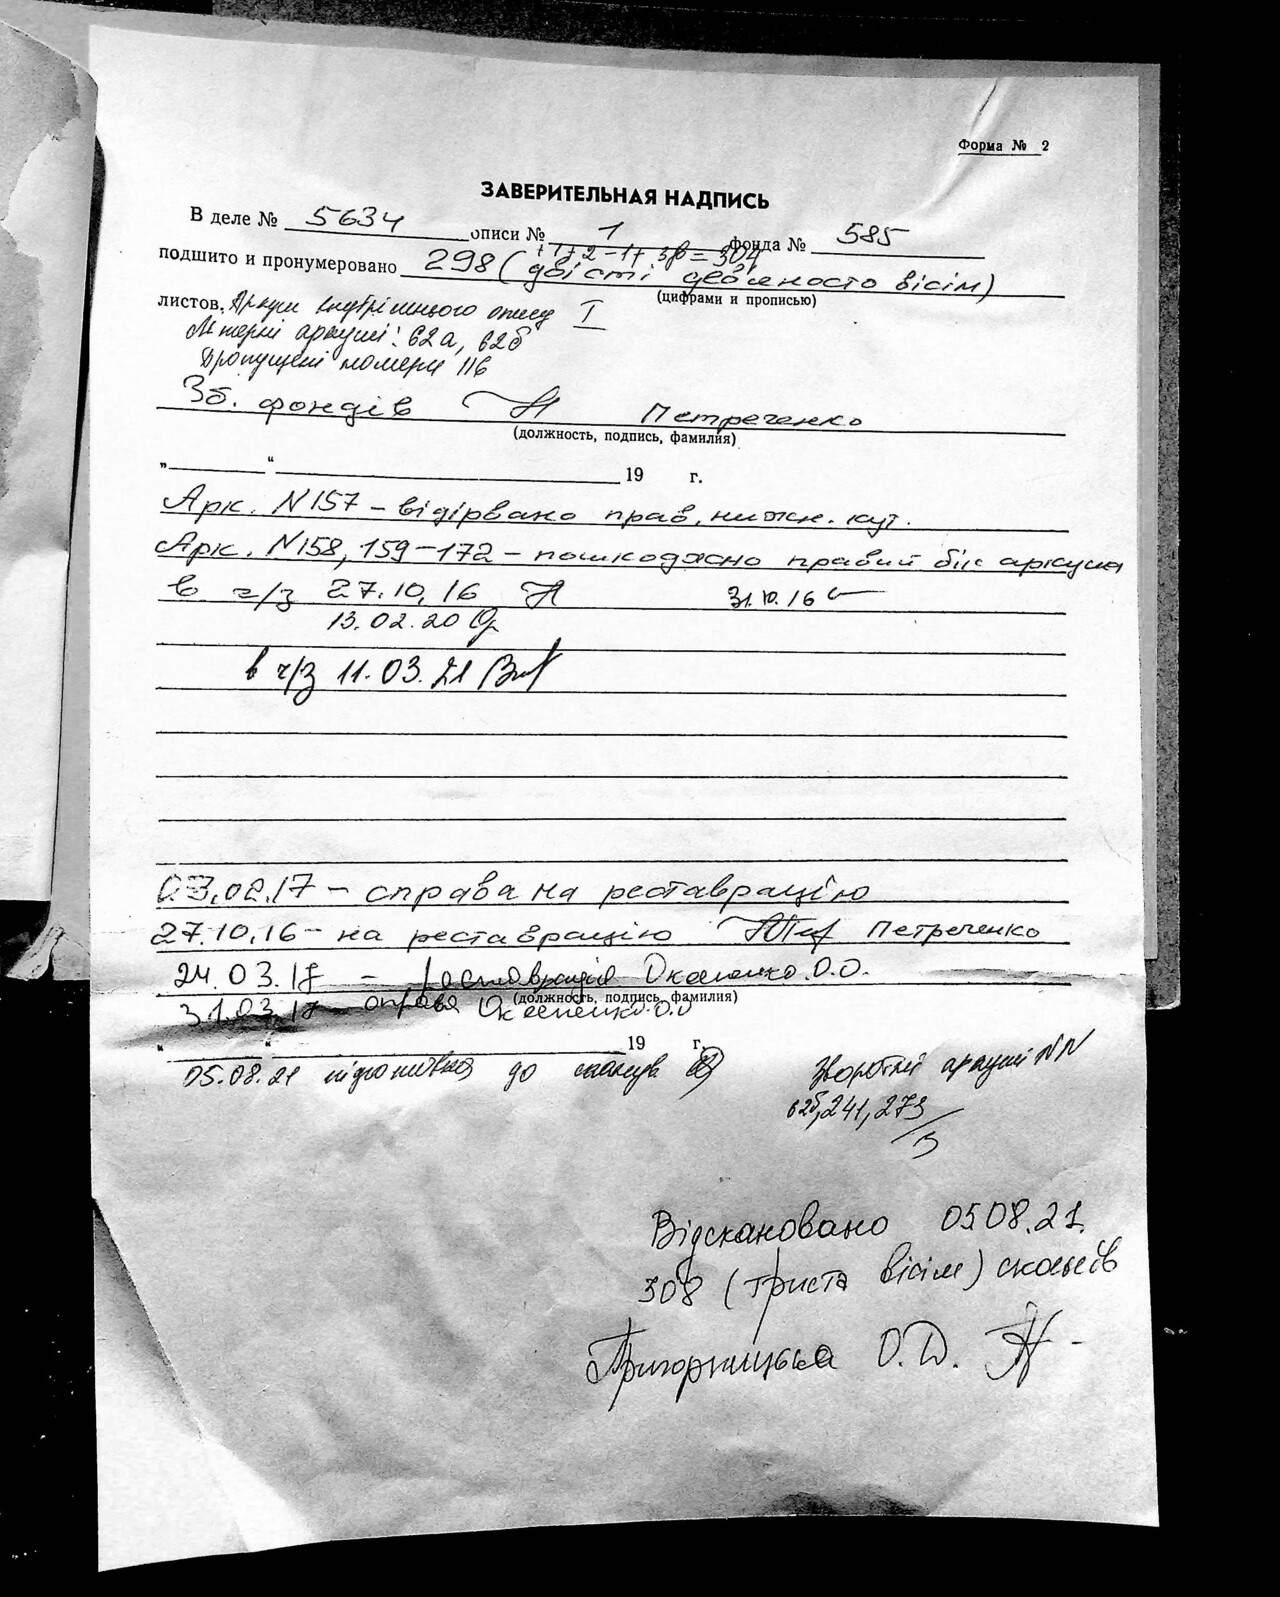 Форма № 2
ЗАВЕРИТЕЛЬНАЯ НАДПИСЬ
В деле № 5634 описи № 1 фонда № 585
+1+2-1+3в=304
подшито и пронумеровано 298 (двісті дев'яносто вісім)
(цифрами и прописью)
листов. Аркуш внутрішнього опису I
Літерні аркуші: 62а, 62б
Пропущені номери 116
Зб. фондів Петреченко
(должность, подпись, фамилия)
„ “ 19 г.
Арк. N157 – відірвано прав. нижн. кут.
Арк. N158, 159–172 – пошкоджено правий бік аркуша
в ч/з 27.10.16 31.10.16
13.02.20
в ч/з 11.03.21
03.02.17 – справа на реставрацію
27.10.16 – на реставрацію Петреченко
24.03.17 – реставрація О.О.
(должность, подпись, фамилия)
31.03.17 справа О.О
„ “ 19 г.
05.08.21 підготовка до сканув.
Зворотні аркуші NN
62б, 241, 273
/3
Відскановано 05.08.21.
308 (триста вісім) сканів
О.D.